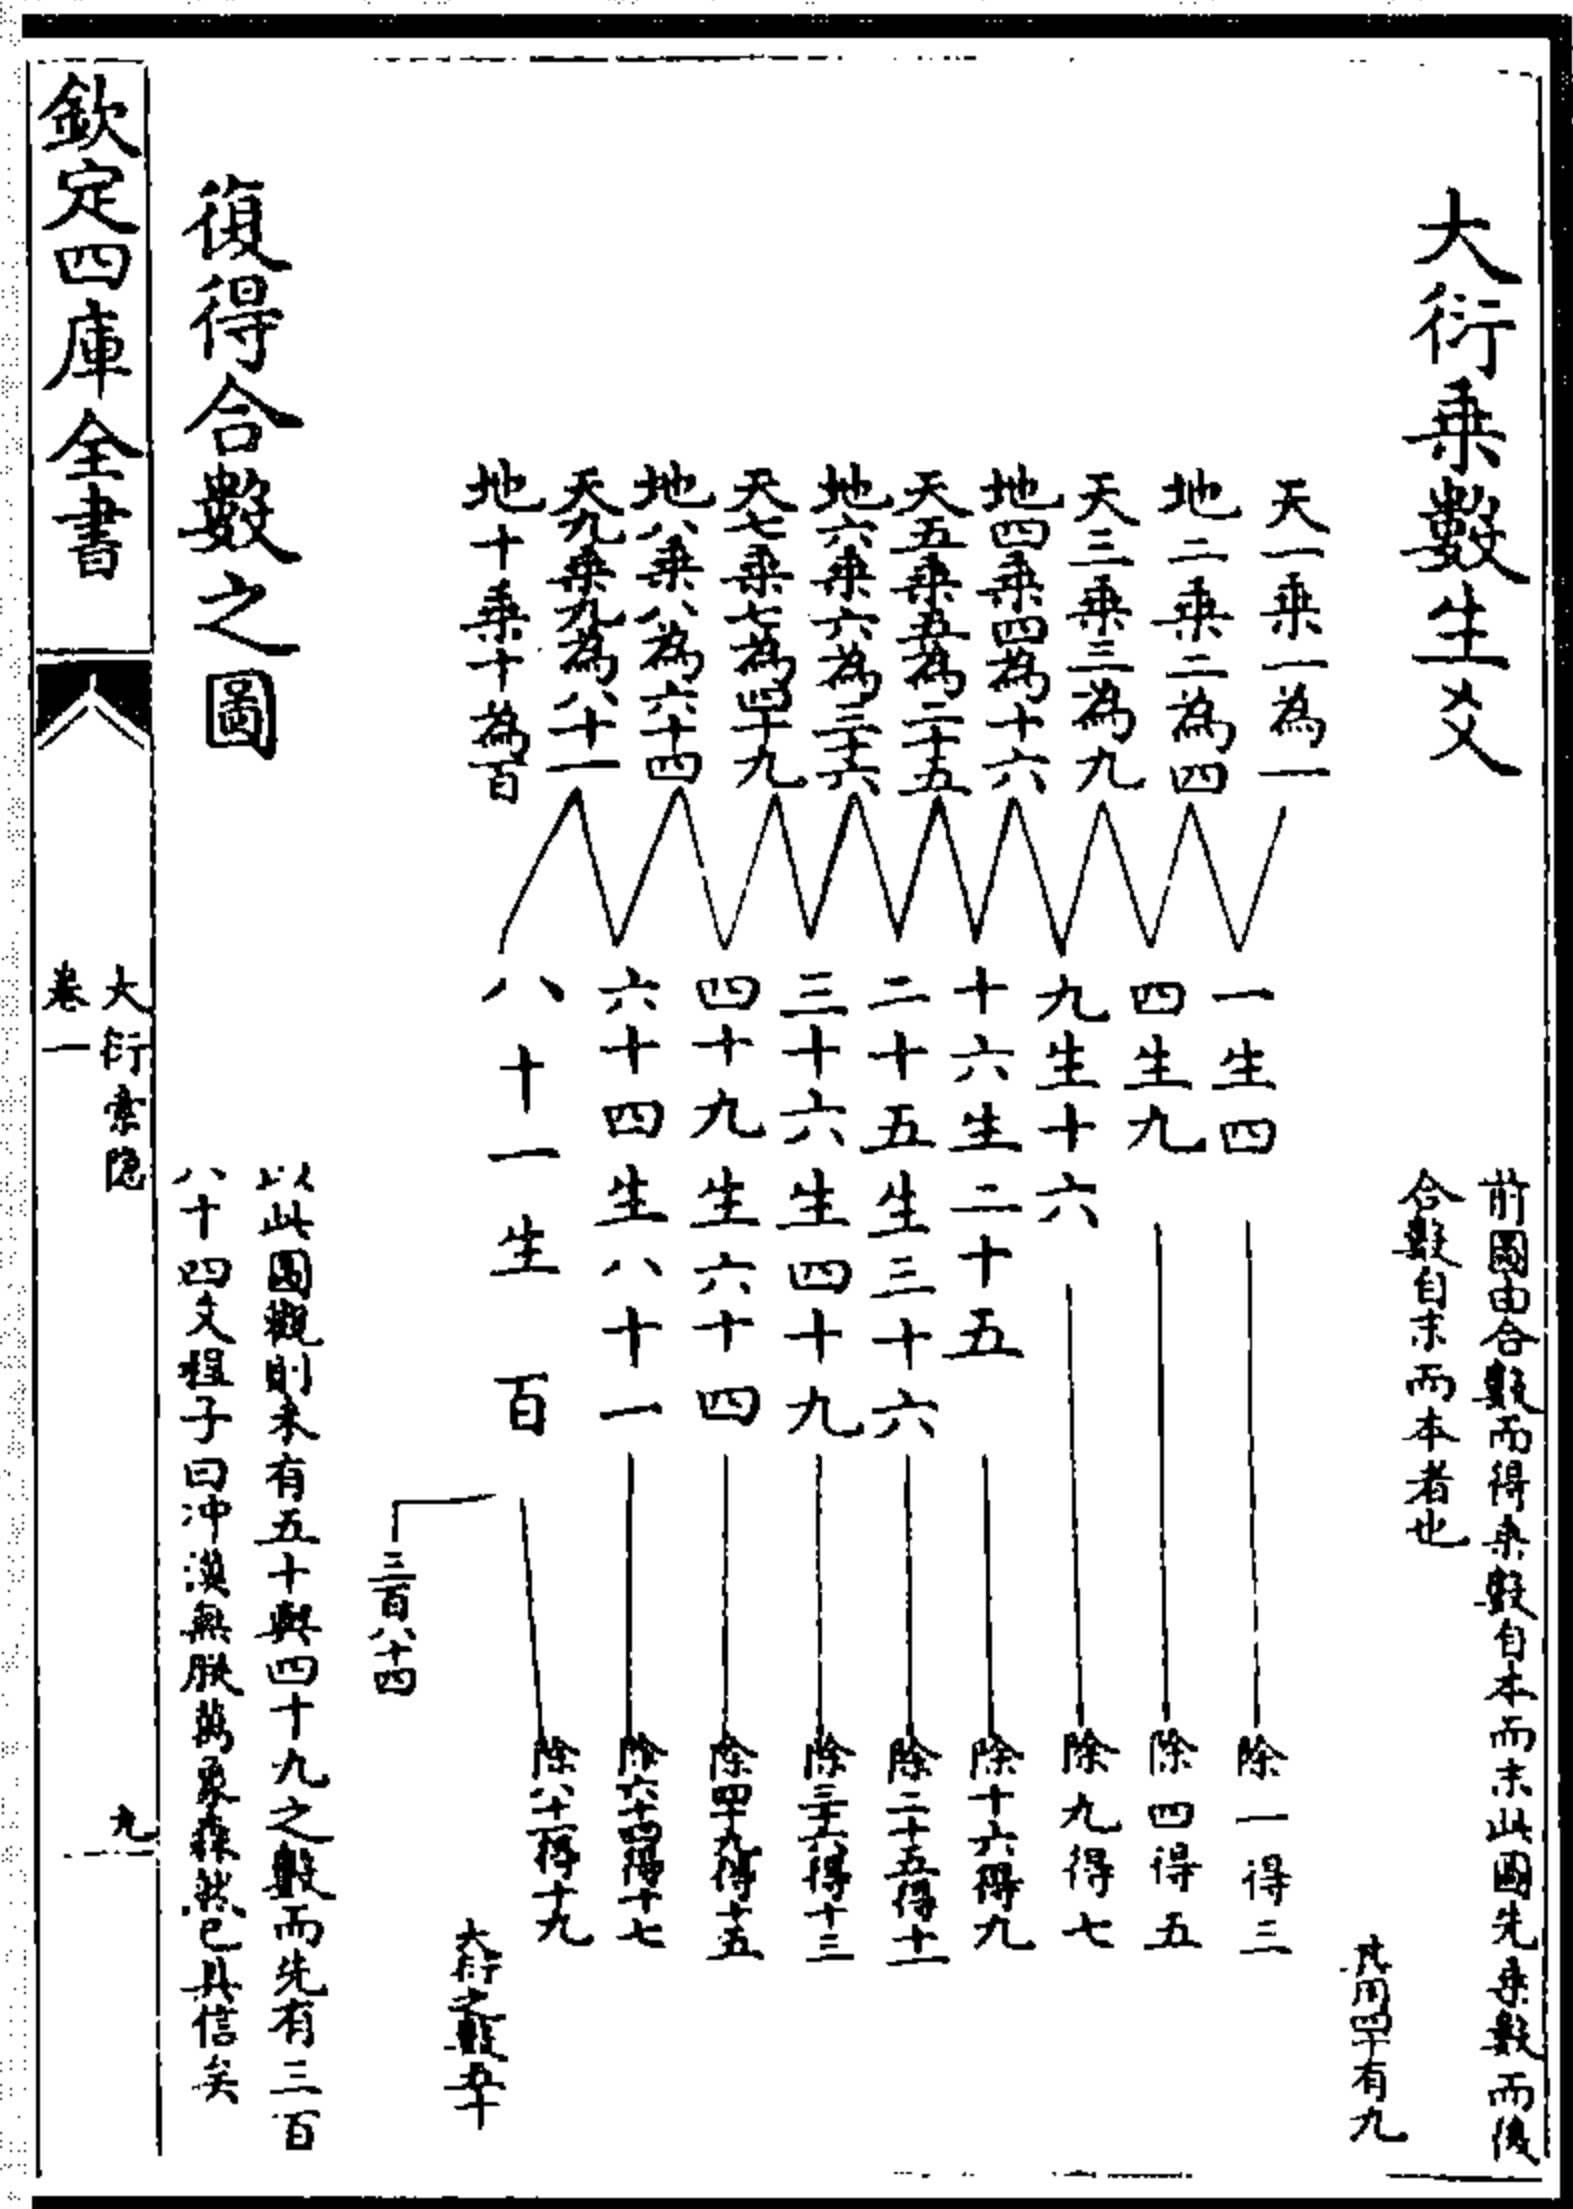 大衍乗數生爻
前圖由合數而得乗數自本而末此圖先乗數而後
合數自末而本者也
其用四十有九
天一乗一為一
地二乗二為四
天三乗三為九
地四乗四為十六
天五乗五為二十五
地六乗六為三十六
天七乗七為四十九
地八乗八為六十四
天九乗九為八十一
地十乗十為百
一生四
四生九
九生十六
十六生二十五
二十五生三十六
三十六生四十九
四十九生六十四
六十四生八十一
八十一生百
三百八十四
除一得三
除四得五
除九得七
除十六得九
除二十五得十一
除三十六得十三
除四十九得十五
除六十四得十七
除八十一得十九
大衍之數五十
復得合數之圖
以此圖觀則未有五十與四十九之數而先有三百
八十四爻程子曰沖漠無朕萬象森然已具信矣
欽定四庫全書
大衍索隱
卷一
九